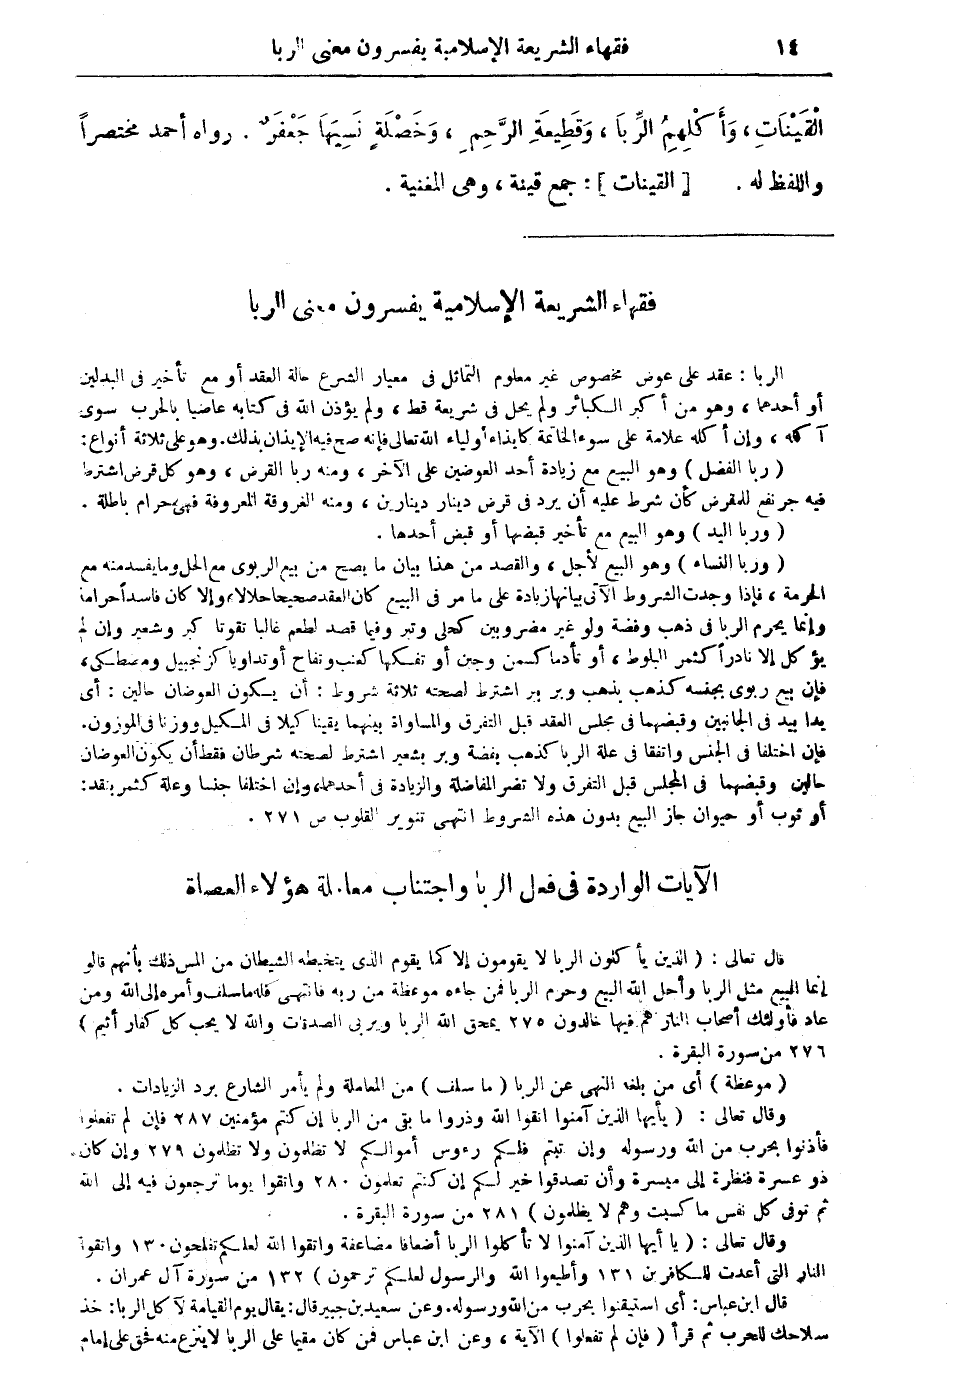 ١٤ فقهاء الشريعة الإسلامية يفسرون معنى الربا
الْقَيْنَاتِ، وَأَكْلِهِمُ الرِّبَا، وَقَطِيعَةِ الرَّحِمِ، وَخَصْلَةٍ نَسِيَهَا جَعْفَرٌ. رواه أحمد مختصراً
واللفظ له. [القينات]: جمع قينة، وهى المغنية.
فقهاء الشريعة الإسلامية يفسرون معنى الربا
الربا: عقد على عوض مخصوص غير معلوم التماثل فى معيار الشرع حالة العقد أو مع تأخير فى البدلين
أو أحدهما، وهو من أكبر الكبائر ولم يحل فى شريعة قط، ولم يؤذن الله فى كتابه عاصيا بالحرب سوى
آكله، وإن أكله علامة على سوء الخاتمة كإيذاء أولياء الله تعالى فإنه صح فيه الإيذان بذلك. وهو على ثلاثة أنواع:
(ربا الفضل) وهو البيع مع زيادة أحد العوضين على الآخر، ومنه ربا القرض، وهو كل قرض اشترط
فيه جر نفع للمقرض كأن شرط عليه أن يرد فى قرض دينار دينارين، ومنه الغروقة المعروفة فهى حرام باطلة.
(وربا اليد) وهو البيع مع تأخير قبضها أو قبض أحدها.
(وربا النساء) وهو البيع لأجل، والقصد من هذا بيان ما يصح من بيع الربوى مع الحل وما يفسد منه مع
الحرمة، فإذا وجدت الشروط الآتى بيانها زيادة على ما مر فى البيع كان العقد صحيحا حلالا، وإلا كان فاسداً حراما
وإنما يحرم الربا فى ذهب وفضة ولو غير مضروبين كحلى وتبر وفيما قصد لطعم غالبا تقوتا كبر وشعير وإن لم
يؤكل إلا نادراً كثمر البلوط، أو تأدما كسمن وجبن أو تفكها كعنب وتفاح أو تداويا كزنجبيل ومصطكى،
فإن بيع ربوى بجنسه كذهب بذهب وبر ببر اشترط لصحته ثلاثة شروط: أن يكون العوضان حالين: أى
يدا بيد فى الجانبين وقبضهما فى مجلس العقد قبل التفرق والمساواة بينهما يقينا كيلا فى المكيل ووزنا فى الموزون.
فإن اختلفا فى الجنس واتفقا فى علة الربا كذهب بفضة وبر بشعير اشترط لصحته شرطان فقط أن يكون العوضان
حالين وقبضهما فى المجلس قبل التفرق ولا تضر المفاضلة والزيادة فى أحدهما، وإن اختلفا جنسا وعلة كثمر بنقد:
أو ثوب أو حيوان جاز البيع بدون هذه الشروط انتهى تنوير القلوب ص ٢٧١.
الآيات الواردة فى فعل الربا واجتناب معاملة هؤلاء العصاة
قال تعالى: (الذين يأكلون الربا لا يقومون إلا كما يقوم الذى يتخبطه الشيطان من المس ذلك بأنهم قالو
إنما البيع مثل الربا وأحل الله البيع وحرم الربا فمن جاءه موعظة من ربه فانتهى فله ما سلف وأمره إلى الله ومن
عاد فأولئك أصحاب النار هم فيها خالدون ٢٧٥ يمحق الله الربا ويربى الصدقات والله لا يحب كل كفار أثيم)
٢٧٦ من سورة البقرة.
(موعظة) أى من بلغه النهى عن الربا (ما سلف) من المعاملة ولم يأمر الشارع برد الزيادات.
وقال تعالى: (يأيها الذين آمنوا اتقوا الله وذروا ما بقى من الربا إن كنتم مؤمنين ٢٨٧ فإن لم تفعلوا
فأذنوا بحرب من الله ورسوله وإن تبتم فلكم رءوس أموالكم لا تظلمون ولا تظلمون ٢٧٩ وإن كان
ذو عسرة فنظرة إلى ميسرة وأن تصدقوا خير لكم إن كنتم تعلمون ٢٨٠ واتقوا يوما ترجعون فيه إلى الله
ثم توفى كل نفس ما كسبت وهم لا يظلمون) ٢٨١ من سورة البقرة.
وقال تعالى: (يا أيها الذين آمنوا لا تأكلوا الربا أضعافا مضاعفة واتقوا الله لعلكم تفلحون ١٣٠ واتقوا
النار التى أعدت للكافرين ١٣١ وأطيعوا الله والرسول لعلكم ترحمون) ١٣٢ من سورة آل عمران.
قال ابن عباس: أى استيقنوا بحرب من الله ورسوله. وعن سعيد بن جبير قال: يقال يوم القيامة لآكل الربا: خذ
سلاحك للحرب ثم قرأ (فإن لم تفعلوا) الآية، وعن ابن عباس فمن كان مقيما على الربا لا ينزع منه فحق على إمام